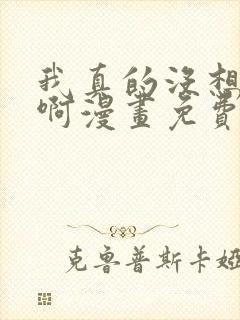 我真的没想
啊漫畫免費
克鲁普斯卡娅